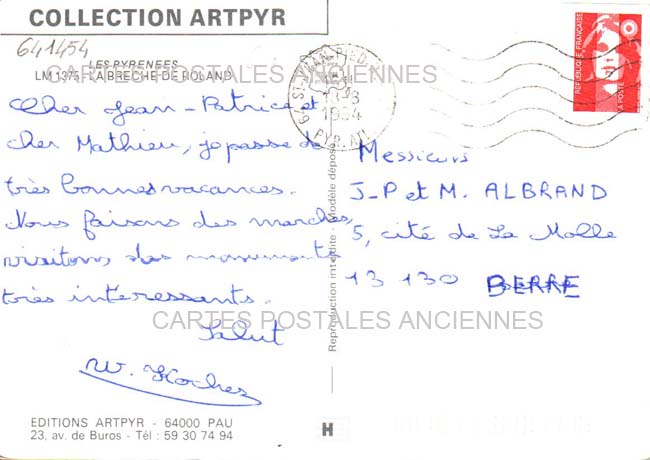 COLLECTION ARTPYR
641454
LES PYRENEES
LM 1375 - LA BRECHE DE ROLAND
CARTES POSTALES ANCIENNES
Cher Jean-Patrice et
cher Mathieu, je passe de
très bonnes vacances.
Nous faisons des marches,
visitons des monuments
très interessants.
Salut
EDITIONS ARTPYR - 64000 PAU
23, av. de Buros - Tél : 59 30 74 94
Reproduction interdite - Modèle déposé
H
64 ST JEAN PIED
1994
PYR. ATL.
REPUBLIQUE FRANÇAISE
LA POSTE
Messieurs
J-P et M. ALBRAND
5, cité de La Molle
13 130 BERRE
CARTES POSTALES ANCIENNES